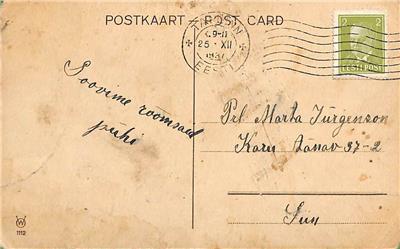 POSTKAART - POST CARD
TALLINN
9-11
25 XII
1937
EESTI
2 2
EESTI POST
Soovime rõõmsaid
pühi
Prl Marta Jürgenson
Karu tänav 37-2
Siin
W
1112